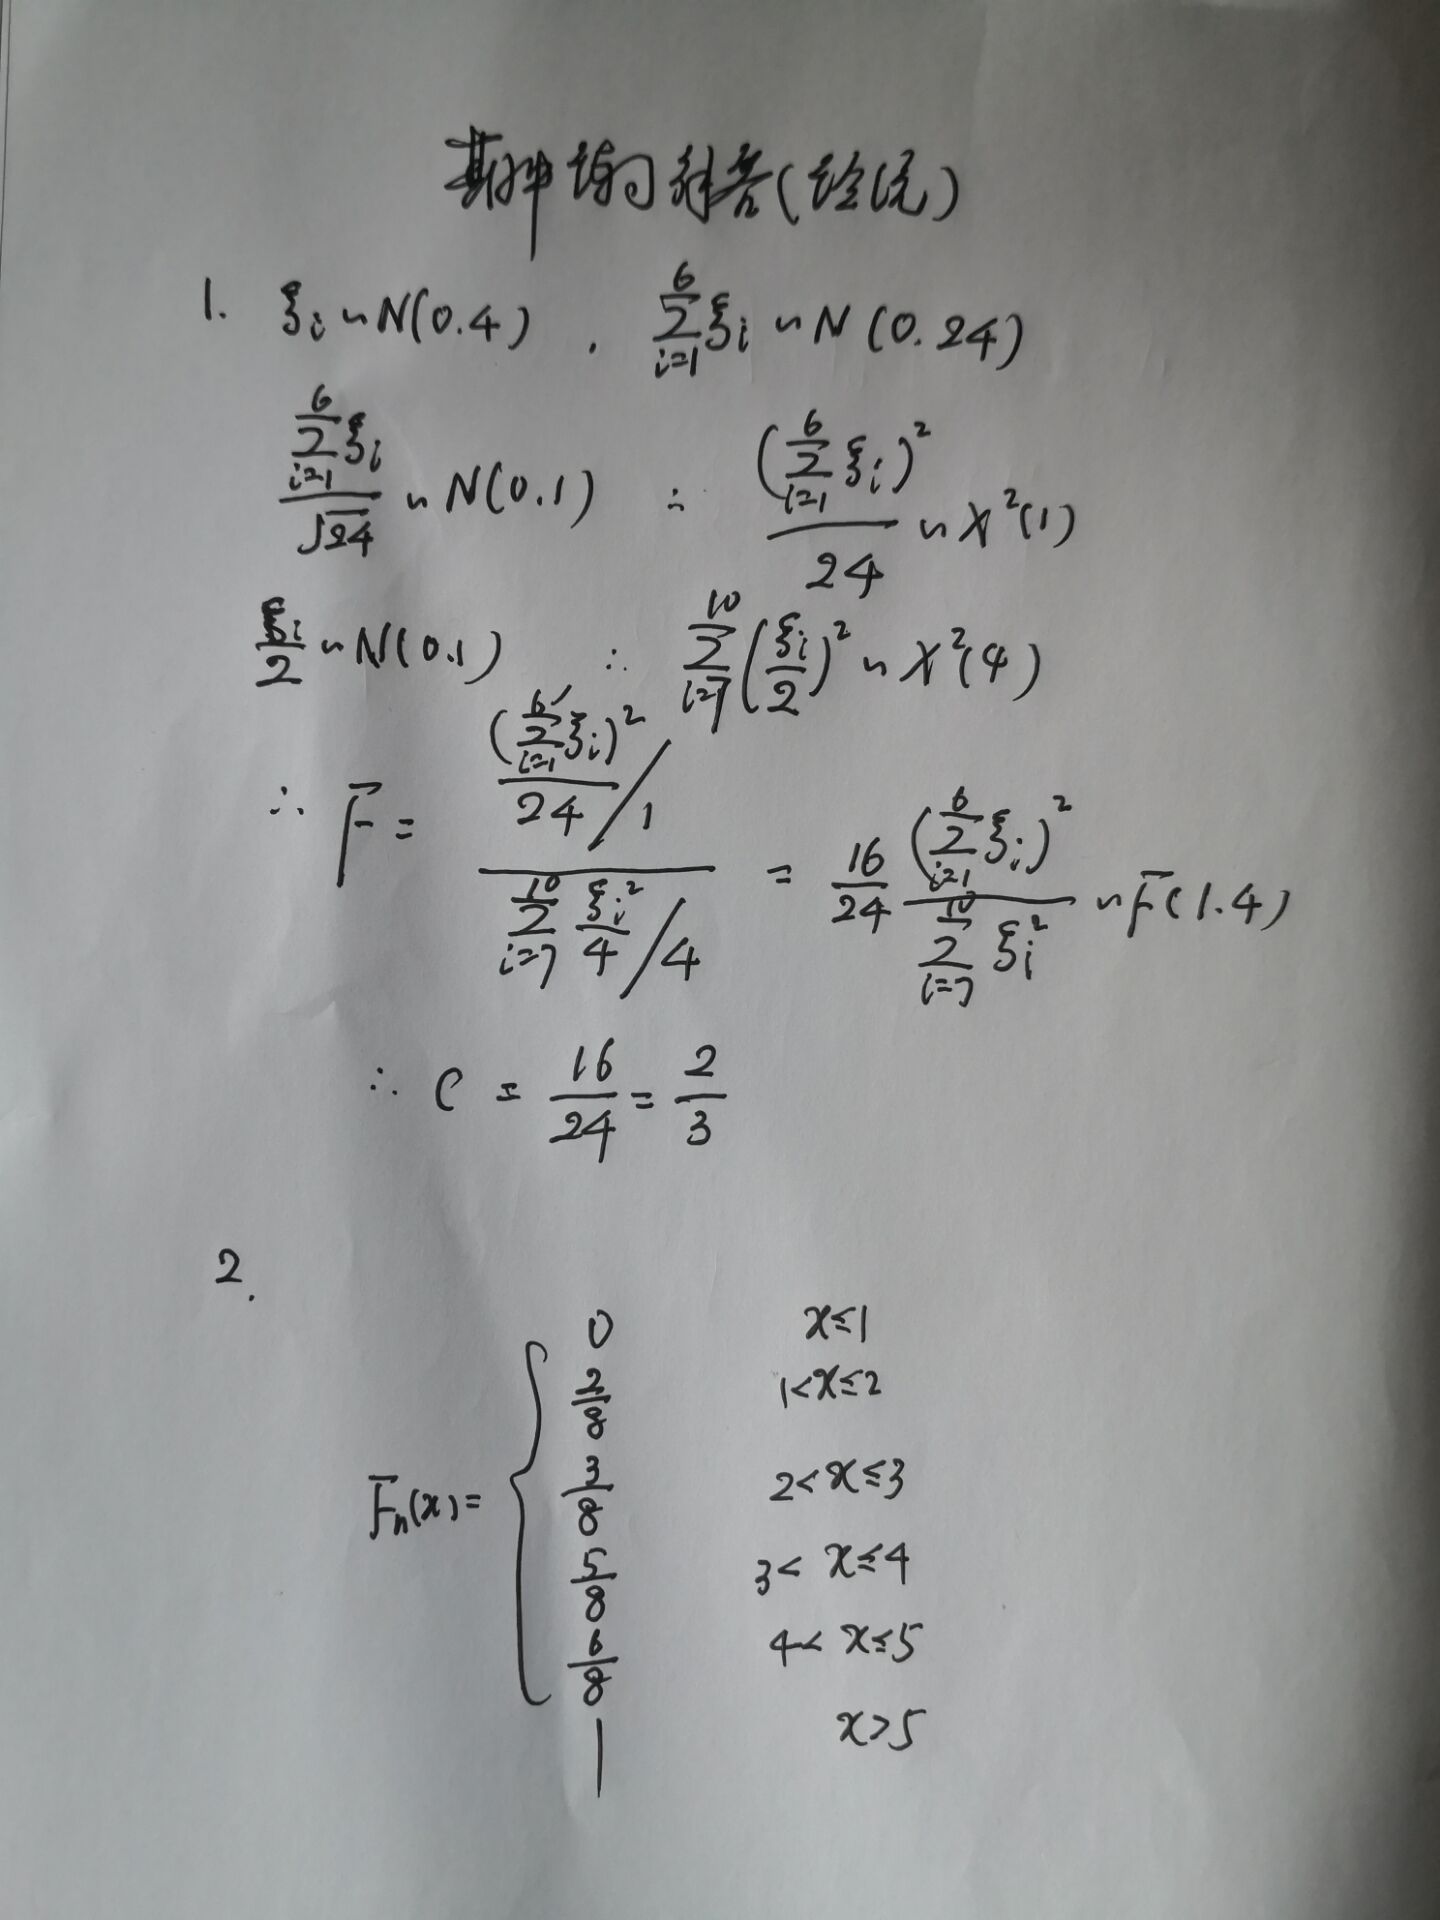 期中试卷解答(经统)
1. ξi ~ N(0.4) , ∑_{i=1}^{6} ξi ~ N(0.24)
∑_{i=1}^{6} ξi / √24 ~ N(0.1) ∴ (∑_{i=1}^{6} ξi)² / 24 ~ χ²(1)
ξi/2 ~ N(0.1) ∴ ∑_{i=7}^{10} (ξi/2)² ~ χ²(4)
∴ F = ((∑_{i=1}^{6} ξi)²/24 / 1) / (∑_{i=7}^{10} ξi²/4 / 4) = 16/24 (∑_{i=1}^{6} ξi)² / ∑_{i=7}^{10} ξi² ~ F(1.4)
∴ C = 16/24 = 2/3
2.
Fn(x) = {
0 x≤1
2/8 1<x≤2
3/8 2<x≤3
5/8 3<x≤4
6/8 4<x≤5
1 x>5